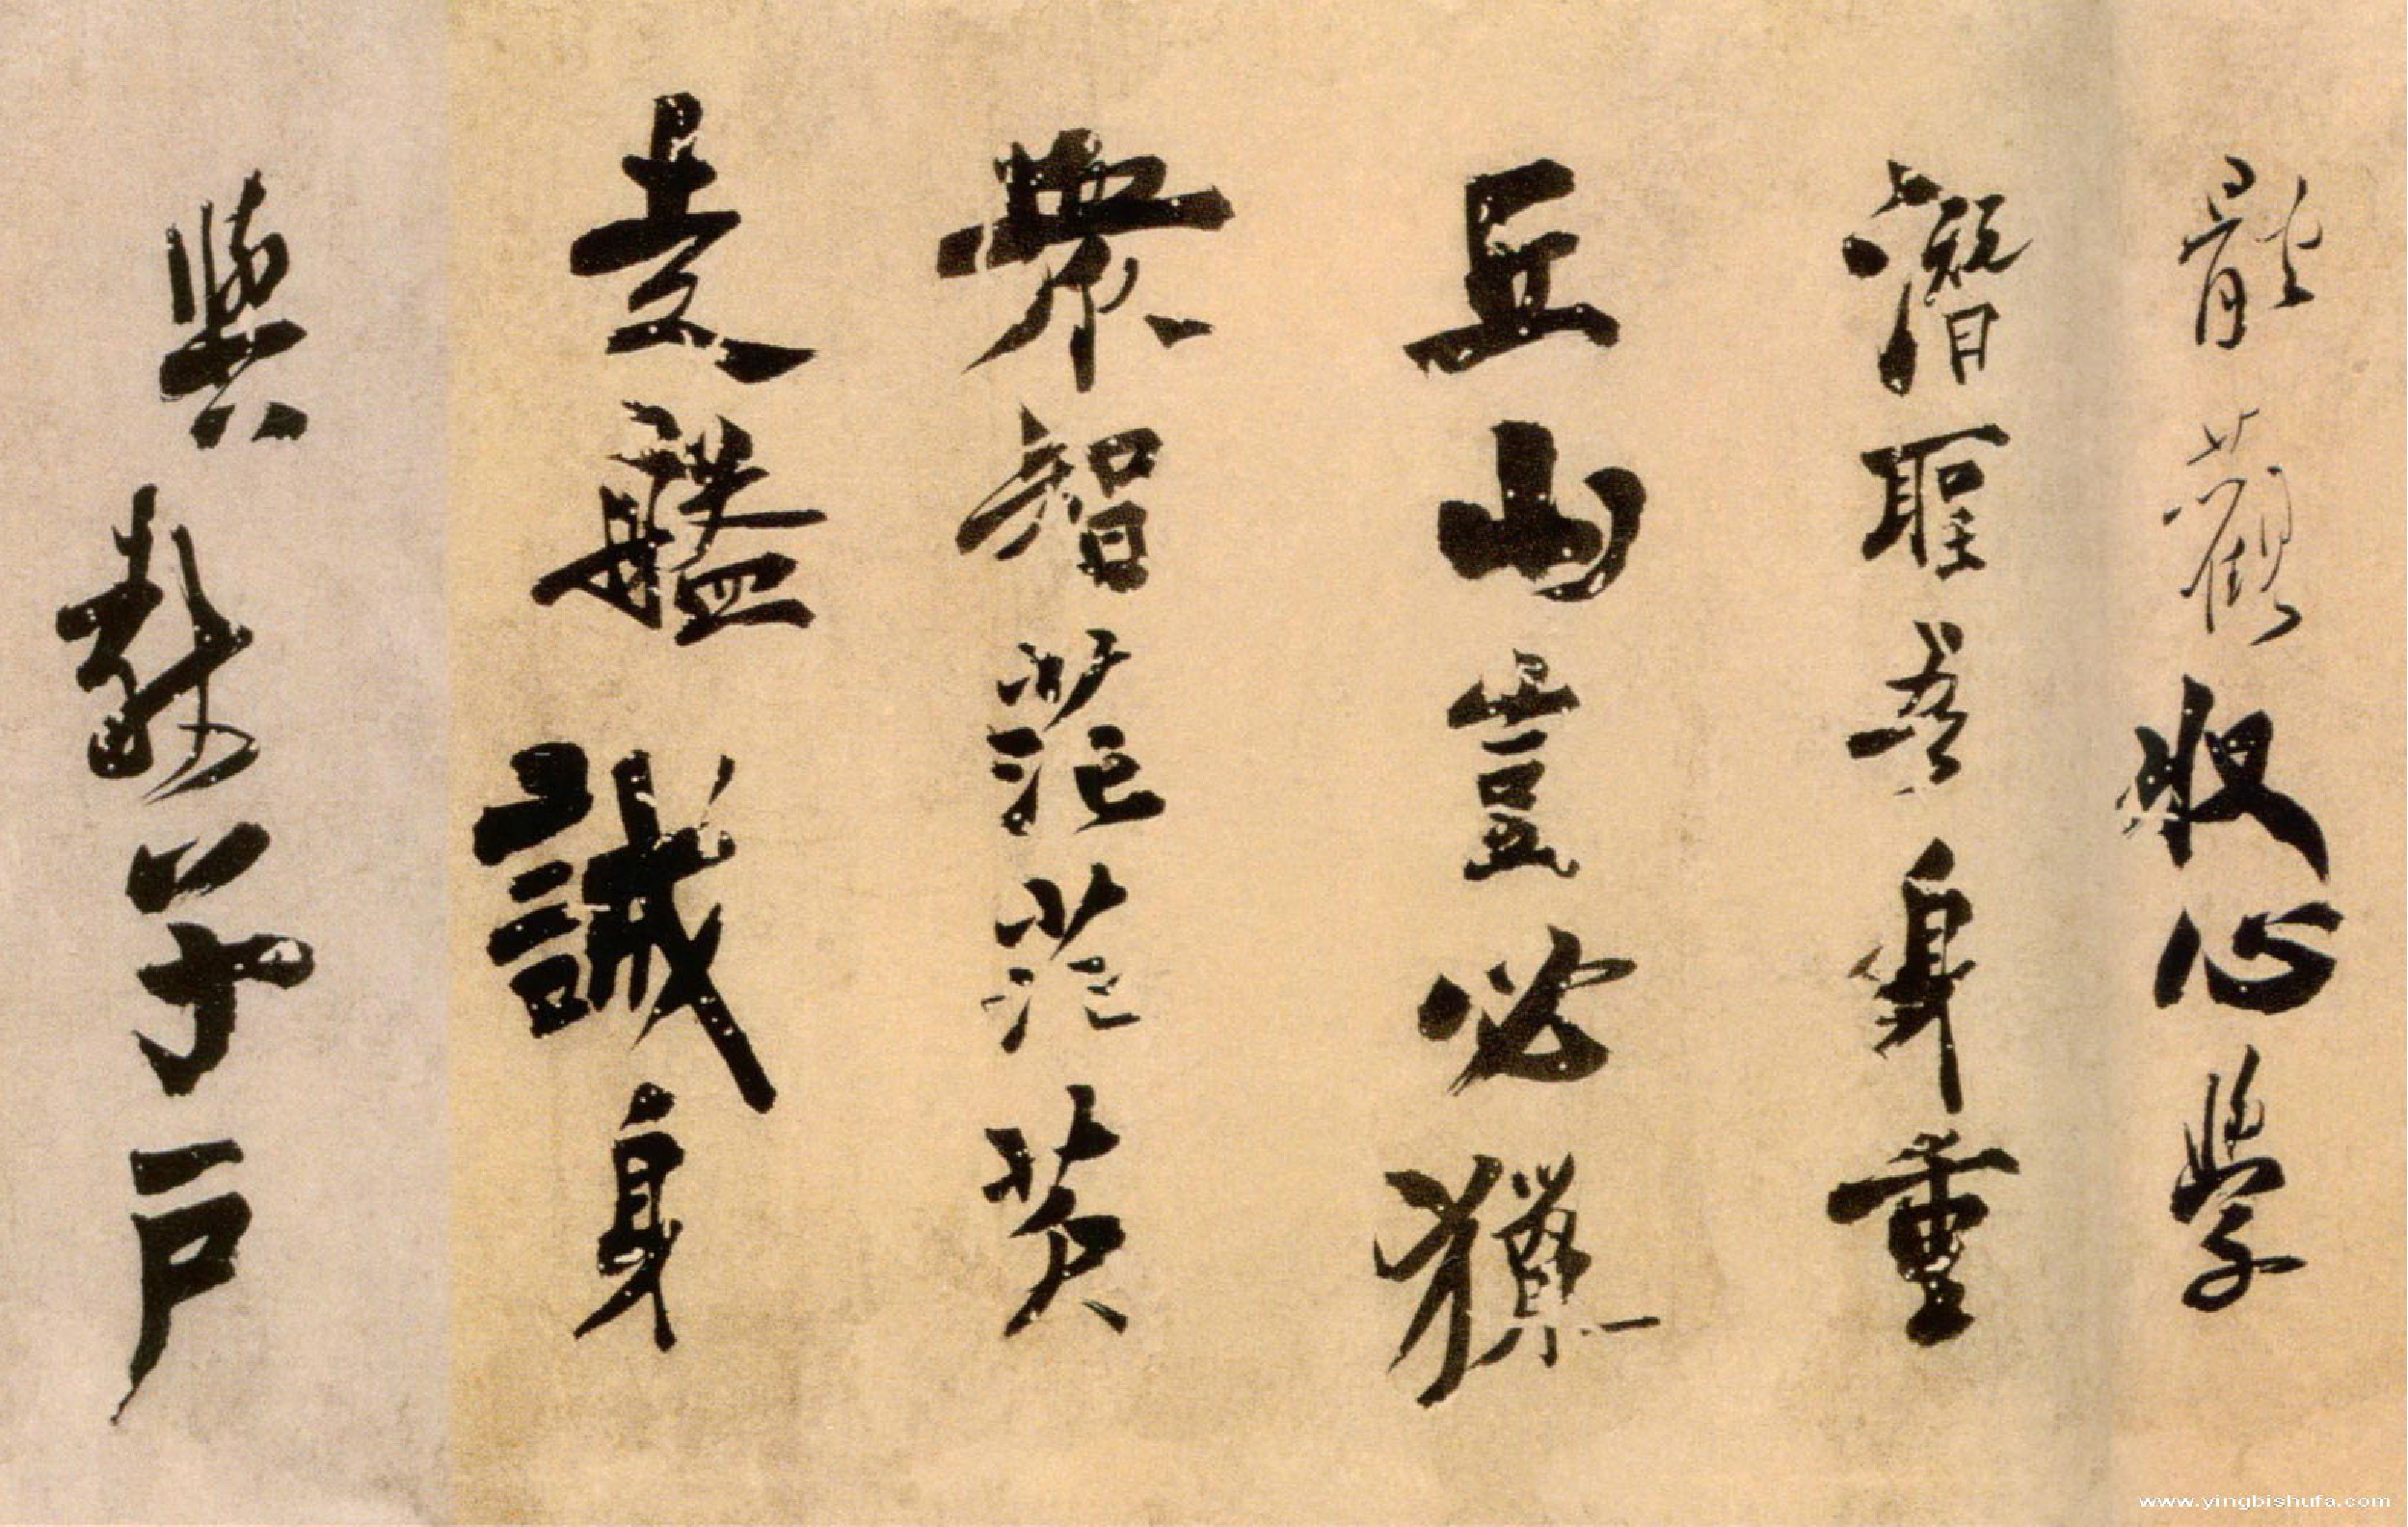 觀收心學
潛聖吾身重
丘山豈必獵
衆智茫茫
艦誠身
與戶
www.yingbishufa.com